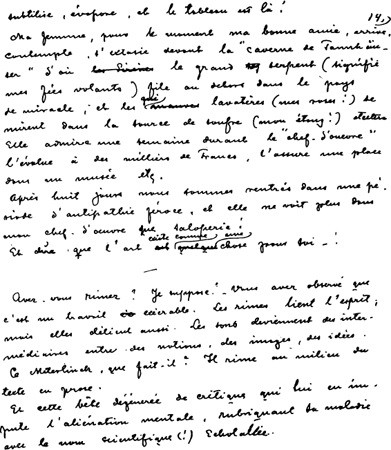 subtilise, évapore, et le tableau est là!
14.)
Ma femme, pour le moment ma bonne amie, arrive,
contemple, s'extasie devant la "caverne de Tannhäu-
ser" d'où le grand serpent (signifie
mes fiés volants) file au dehors dans le pays
de miracle, et les qui lavatères (mes roses!) se
mirent dans la source de soufre (mon étang!) etcetera
Elle admire une semaine durant le "chef-d'oeuvre"
l'évalue à des milliers de francs, l'assure une place
dans un musée etc.
Après huit jours nous sommes rentrés dans une pé-
riode d'antipathie féroce, et elle ne voit plus dans
mon chef-d'oeuvre que saloperie!
Et dire que l'art existe comme une chose pour soi—!
—
Avez-vous rimer? Je suppose! Vous avez observé que
c'est un travail exécrable. Les rimes lient l'esprit;
mais elles délient aussi. Les sons deviennent des inter-
médiaires entre des notions, des images, des idées.
Ce Maeterlinck, que fait-il? Il rime au milieu du
texte en prose.
Et cette bête dégénérée de critique qui lui en im-
pute l'aliénation mentale, rubriquant sa maladie
avec le nom scientifique(!) Echolallée.